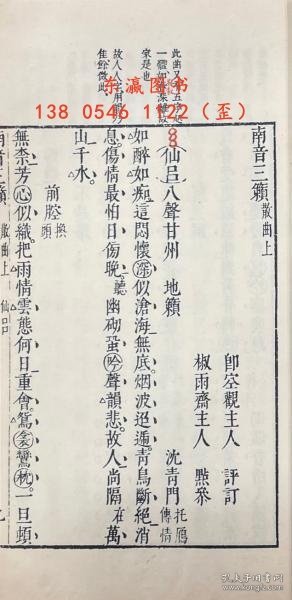 南音三籟 散曲上
即空觀主人 評訂
椒雨齋主人 點參
仙呂八聲甘州 地籟 沈青門 托鴈傳情
如醉如痴這悶懷深似滄海無底烟波迢遞青鳥斷絕消
息傷情最怕日傍晚聽幽砌蛩吟聲韻悲故人尚隔在萬
山千水
前腔 換頭
無柰芳心似織把雨情雲態何日重會鴛衾鸞枕一旦頓
南音三籟 散曲上 仙呂 九
此曲又
家是也
故人人字用韻
佳餘倣此
东瀛图书
138 0546 1122（歪）